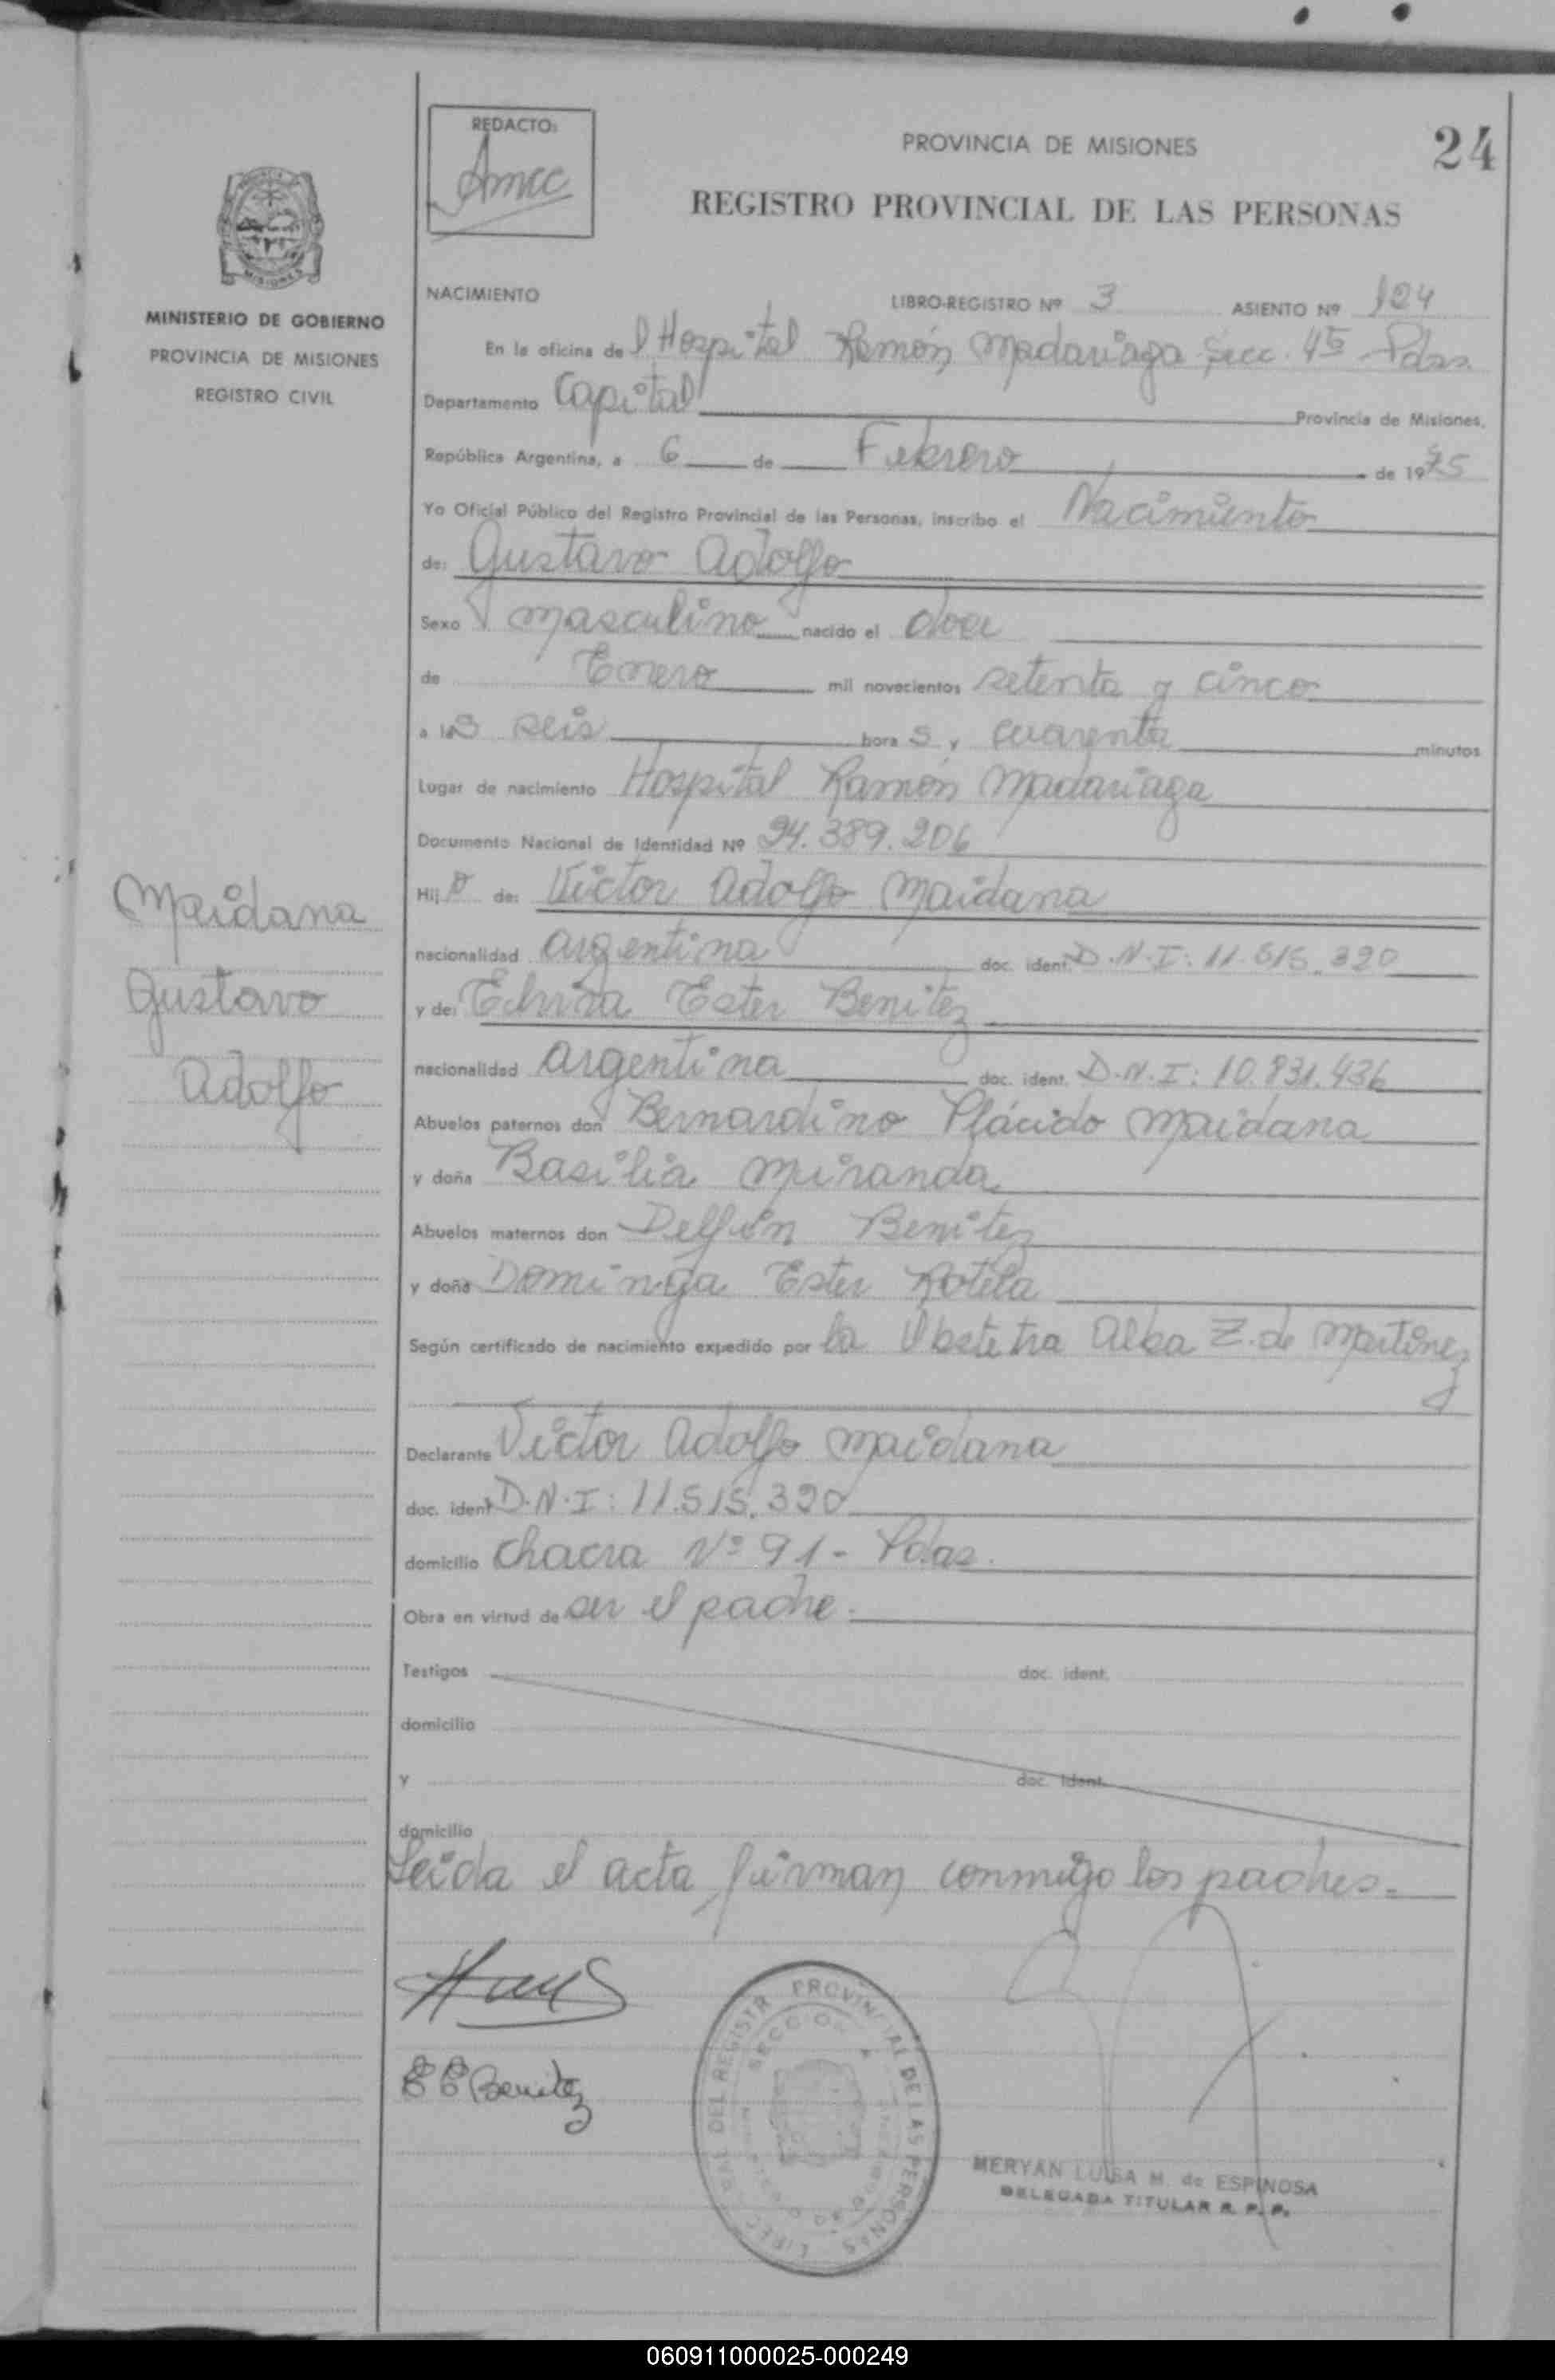 REDACTO:
Amcc
PROVINCIA DE MISIONES
24
REGISTRO PROVINCIAL DE LAS PERSONAS
MISIONES
MINISTERIO DE GOBIERNO
PROVINCIA DE MISIONES
REGISTRO CIVIL
NACIMIENTO LIBRO-REGISTRO Nº 3 ASIENTO Nº 124
En la oficina del Hospital Ramón Madariaga Secc. 4ta Pdas.
Departamento Capital Provincia de Misiones,
República Argentina, a 6 de Febrero de 1975
Yo Oficial Público del Registro Provincial de las Personas, inscribo el Nacimiento
de: Gustavo Adolfo
Sexo masculino nacido el doce
de Enero mil novecientos setenta y cinco
a las seis horas y cuarenta minutos
Lugar de nacimiento Hospital Ramón Madariaga
Documento Nacional de Identidad Nº 24.389.206
Hijo de: Victor Adolfo Maidana
nacionalidad argentina doc. ident. D.N.I: 11.515.320
y de: Elvira Ester Benitez
nacionalidad argentina doc. ident. D.N.I: 10.831.436
Abuelos paternos don Bernardino Plácido Maidana
y doña Basilia Miranda
Abuelos maternos don Delfin Benitez
y doña Dominga Ester Rotela
Según certificado de nacimiento expedido por la Obstetra Alba Z. de Martinez
Declarante Victor Adolfo Maidana
doc. ident D.N.I: 11.515.320
domicilio Chacra Nº 91 - Pdas.
Obra en virtud de ser el padre.
Testigos doc. ident.
domicilio
y doc. ident.
domicilio
Leida el acta firman conmigo los padres.
Maidana
Gustavo
Adolfo
E E Benitez
PROVINCIAL DE LAS PERSONAS
DEL REGISTR
SECCION
MERYAN LUISA M. de ESPINOSA
DELEGADA TITULAR R. P. P.
060911000025-000249